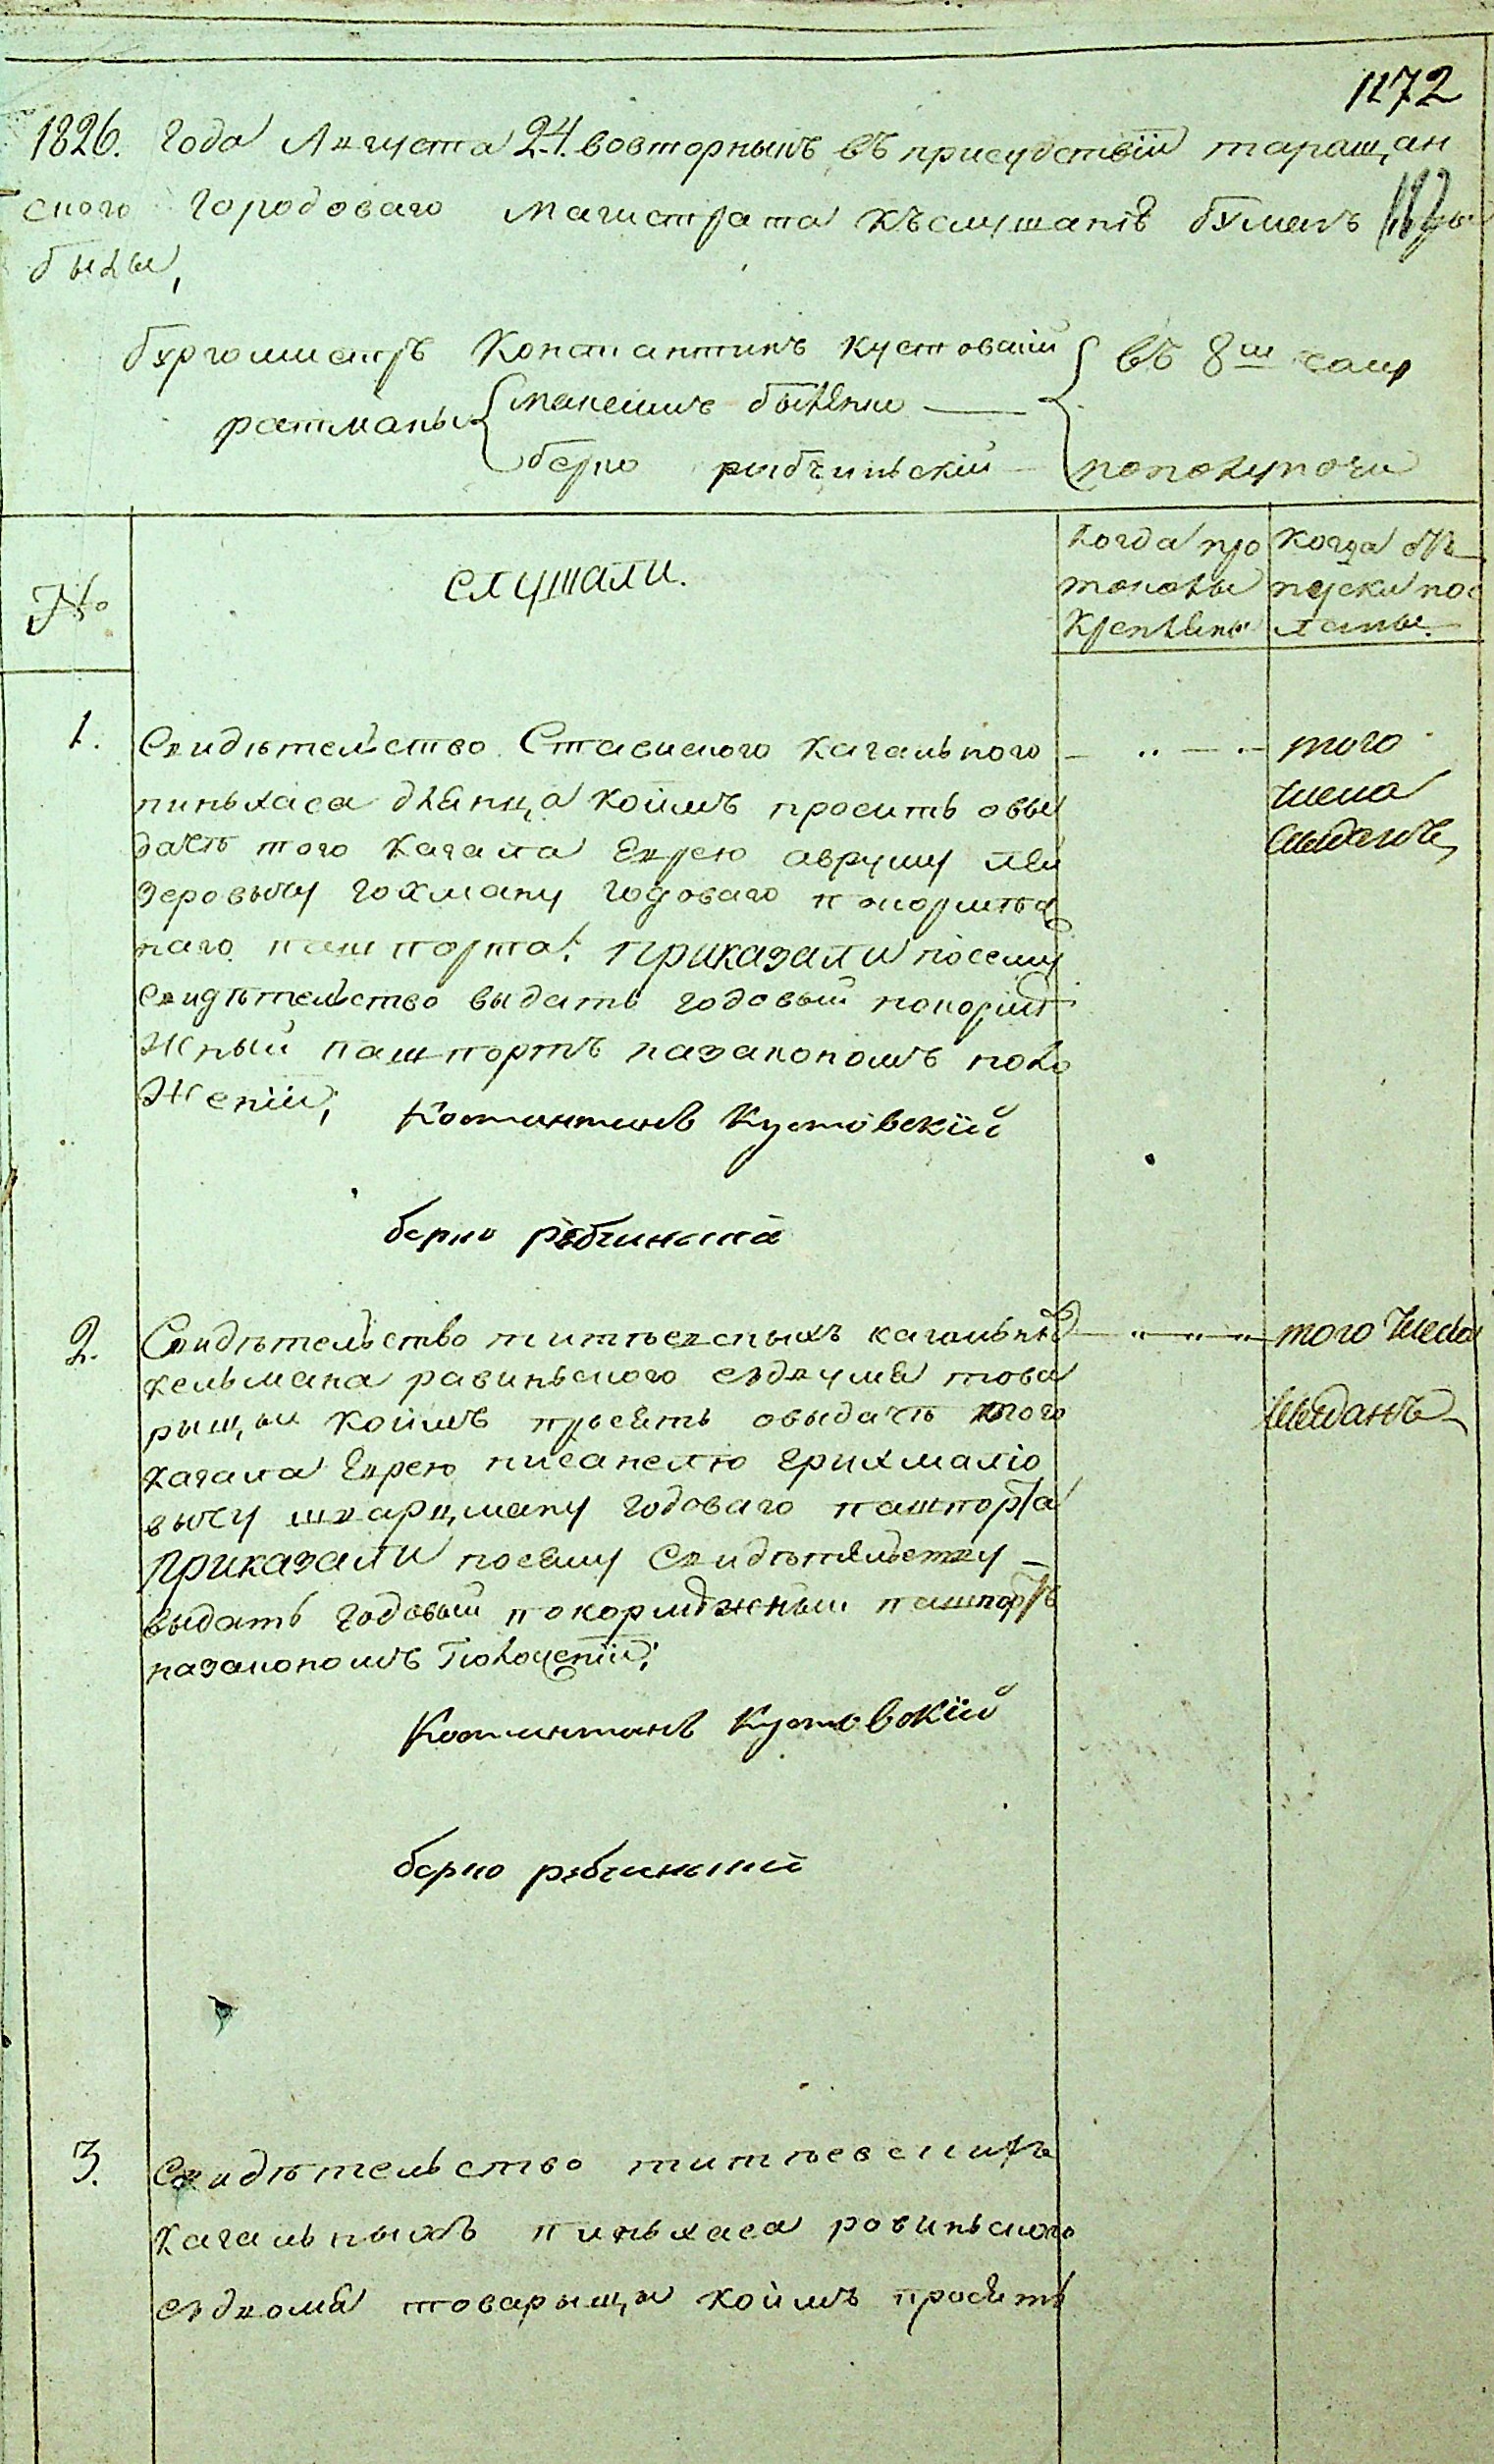 1172
1826. года Августа 24. вовторныкъ въ присудствіи таращан
ского городоваго магистрата къслушанію бумагъ
были,
бургомистръ Константинъ кустовскій въ 8м часу
ратманы
берко рыбчиньскій пополуночи
№
слушали.
когда про
токолы
крепълены
когда отъ
пуски пос
ланы.
1.
Свидѣтельство Ставиского кагального
пиньхаса дленца коимъ просить овы
дачѣ того кагала Еврею авруму лей
зеровычу гохману годоваго покормеж
наго пашпорта: приказали посему
свидѣтельство выдать годовый покормѣ
жный пашпортъ назакономъ поло
женіи;
того
числа
выданъ
Костинтинъ Кустовскій
берко рѣбчинский
2.
Свидѣтельство титіевскыхъ кагальныхъ
хельмана равиньского сздвума това
рыщы коимъ просить овыдачѣ того
кагала Еврею нисанелю ерихмаліо
вычу шварцману годоваго пашпорта
приказали посему Свидѣтельству
выдать годовый покормѣжный пашпортъ
назакономъ положеніи;
того числа
выданъ
Костинтинъ Кустовскій
берко рѣбчинский
3.
Свидѣтельство титіевскихъ
кагальныхъ пиньхаса ровиньского
сздвома товарыщы коимъ просить